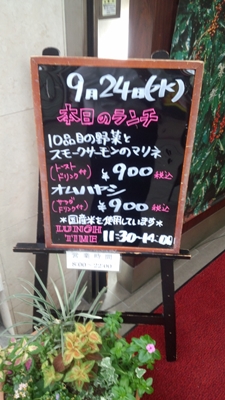 9月24日(水)
本日のランチ
10品目の野菜と
スモークサーモンのマリネ
(トースト
ドリンク付) ¥900 税込
オムハヤシ
(サラダ
ドリンク付) ¥900 税込
*国産米を使用しています*
LUNCH
TIME 11:30~14:00
営業時間
8:00~22:00